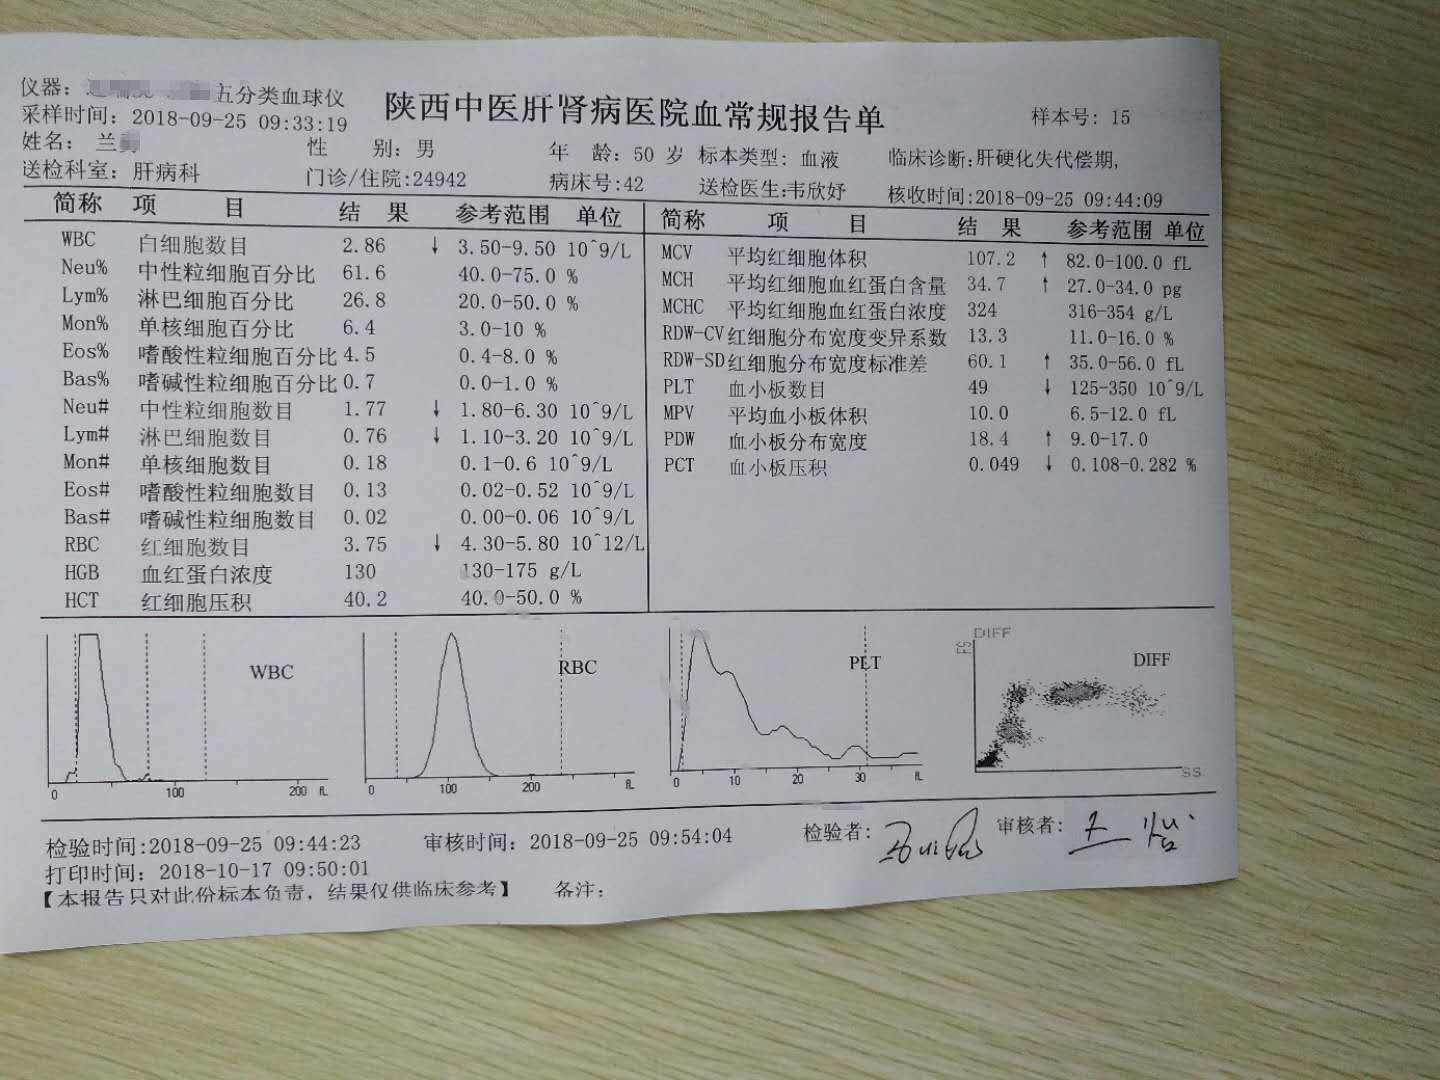 仪器: 五分类血球仪
陕西中医肝肾病医院血常规报告单
样本号: 15
采样时间: 2018-09-25 09:33:19
姓名: 兰 性 别: 男 年 龄: 50 岁 标本类型: 血液 临床诊断:肝硬化失代偿期,
送检科室: 肝病科 门诊/住院:24942 病床号:42 送检医生:韦欣妤 核收时间:2018-09-25 09:44:09
简称 项 目 结 果 参考范围 单位
WBC 白细胞数目 2.86 ↓ 3.50-9.50 10^9/L
Neu% 中性粒细胞百分比 61.6 40.0-75.0 %
Lym% 淋巴细胞百分比 26.8 20.0-50.0 %
Mon% 单核细胞百分比 6.4 3.0-10 %
Eos% 嗜酸性粒细胞百分比 4.5 0.4-8.0 %
Bas% 嗜碱性粒细胞百分比 0.7 0.0-1.0 %
Neu# 中性粒细胞数目 1.77 ↓ 1.80-6.30 10^9/L
Lym# 淋巴细胞数目 0.76 ↓ 1.10-3.20 10^9/L
Mon# 单核细胞数目 0.18 0.1-0.6 10^9/L
Eos# 嗜酸性粒细胞数目 0.13 0.02-0.52 10^9/L
Bas# 嗜碱性粒细胞数目 0.02 0.00-0.06 10^9/L
RBC 红细胞数目 3.75 ↓ 4.30-5.80 10^12/L
HGB 血红蛋白浓度 130 130-175 g/L
HCT 红细胞压积 40.2 40.0-50.0 %
简称 项 目 结 果 参考范围 单位
MCV 平均红细胞体积 107.2 ↑ 82.0-100.0 fL
MCH 平均红细胞血红蛋白含量 34.7 ↑ 27.0-34.0 pg
MCHC 平均红细胞血红蛋白浓度 324 316-354 g/L
RDW-CV 红细胞分布宽度变异系数 13.3 11.0-16.0 %
RDW-SD 红细胞分布宽度标准差 60.1 ↑ 35.0-56.0 fL
PLT 血小板数目 49 ↓ 125-350 10^9/L
MPV 平均血小板体积 10.0 6.5-12.0 fL
PDW 血小板分布宽度 18.4 ↑ 9.0-17.0
PCT 血小板压积 0.049 ↓ 0.108-0.282 %
WBC
0 100 200 fL
RBC
0 100 200 fL
PLT
0 10 20 30 fL
DIFF
FS
DIFF
SS
检验时间:2018-09-25 09:44:23 审核时间: 2018-09-25 09:54:04 检验者: 审核者:
打印时间: 2018-10-17 09:50:01
【本报告只对此份标本负责, 结果仅供临床参考】 备注: